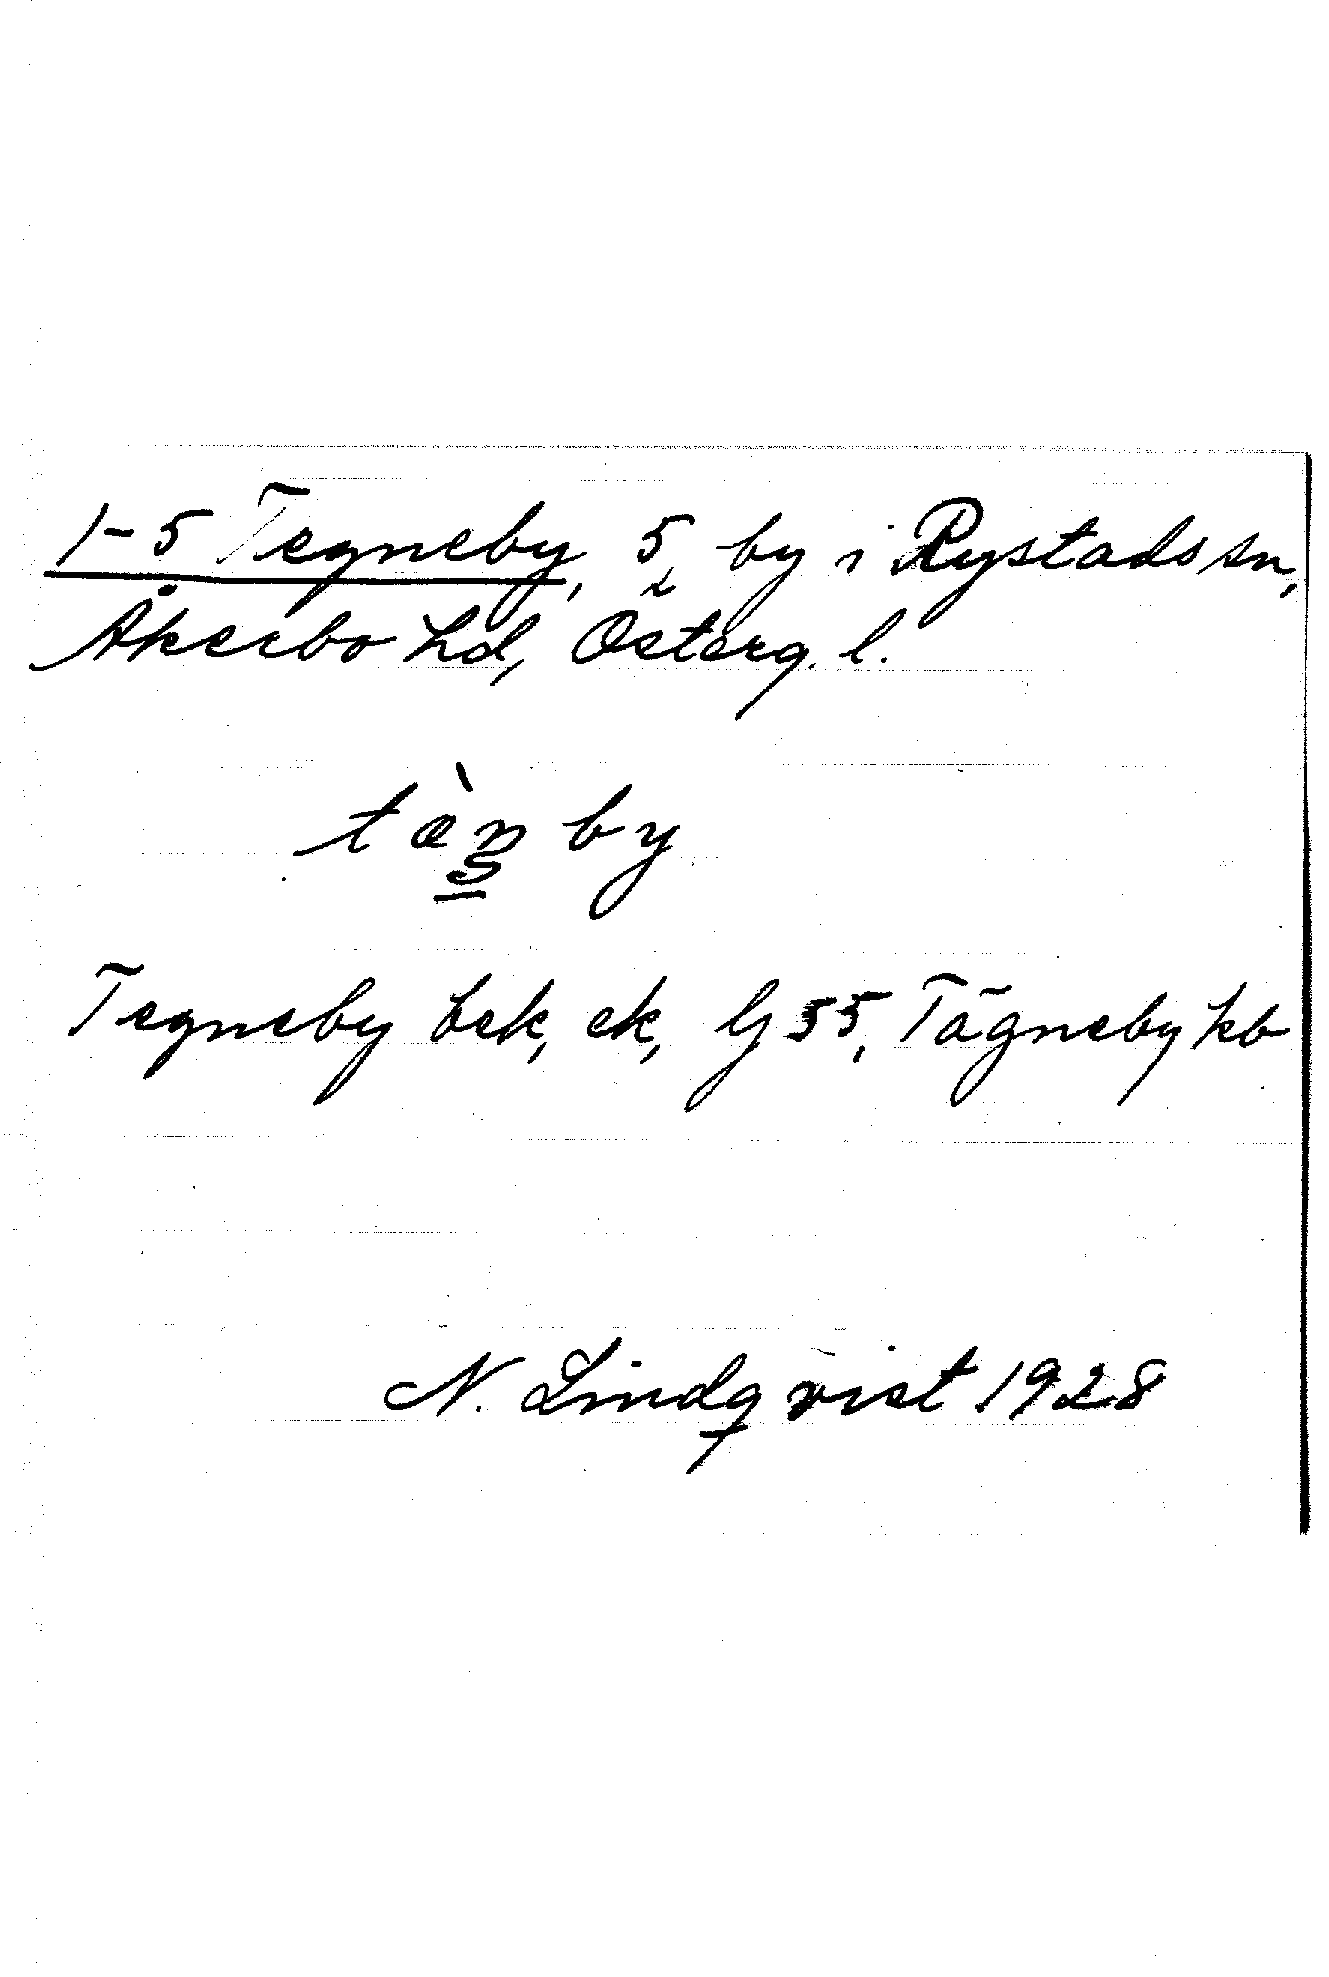 1-5 Tegneby, 5 by i Rystads sn,
Åkerbo hd, Österg. l.
tæ̀n by
Tegneby bek, ek, Gj 55, Tägneby kb
N. Lindqvist 1928